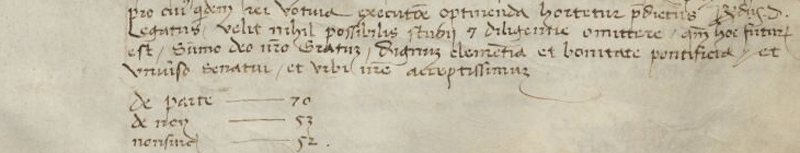 pro cui' q̃dem rei votiua executiõe optinenda hortetur p̃dictus R̃dus. D.
Legatus, velit nihil possibilis studij & diligentie omittere, q̃m hoc futur̃
est, Sumo deo nr̃o Gratuz, dignuz clementia et bonitate pontificia, et
vniu̾so Senatui, et vrbi nr̃e acceptissimuz
de parte —— 70
de non —— 53
nonsince —— 52.